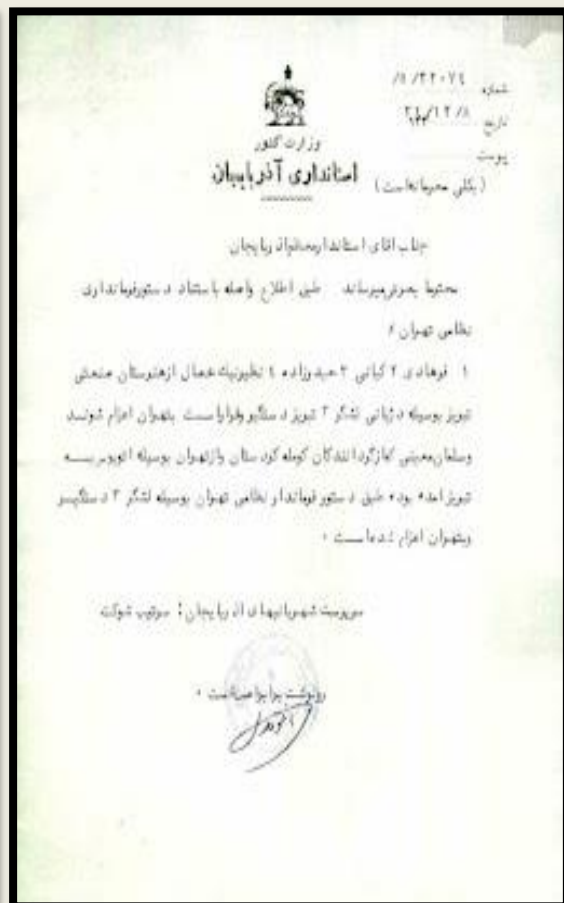 شماره ۲۲۰۷٤/۸/
تاریخ
پیوست
وزارت کشور
استانداری آذربایجان
(بکلی محرمانه است)
جناب آقای استاندار معظم آذربایجان
محترما بعرض میرساند طبق اطلاع واصله باستناد دستور فرمانداری
نظامی تهران
۱ فرهادی ۲ کیانی ۳ حمیدزاده ٤ از هنرستان صنعتی
تبریز بوسیله دژبانی لشگر ۳ تبریز دستگیر و قرار است بتهران اعزام شوند
و سلمان معینی که از گردانندگان کومله کردستان و از تهران بوسیله اتوبوس به
تبریز آمده بوده طبق دستور فرماندار نظامی تهران بوسیله لشگر ۳ دستگیر
و بتهران اعزام شده است ۰
سرپرست شهربانیهای آذربایجان : سرتیپ شوکت
رونوشت برابر اصل است ۰